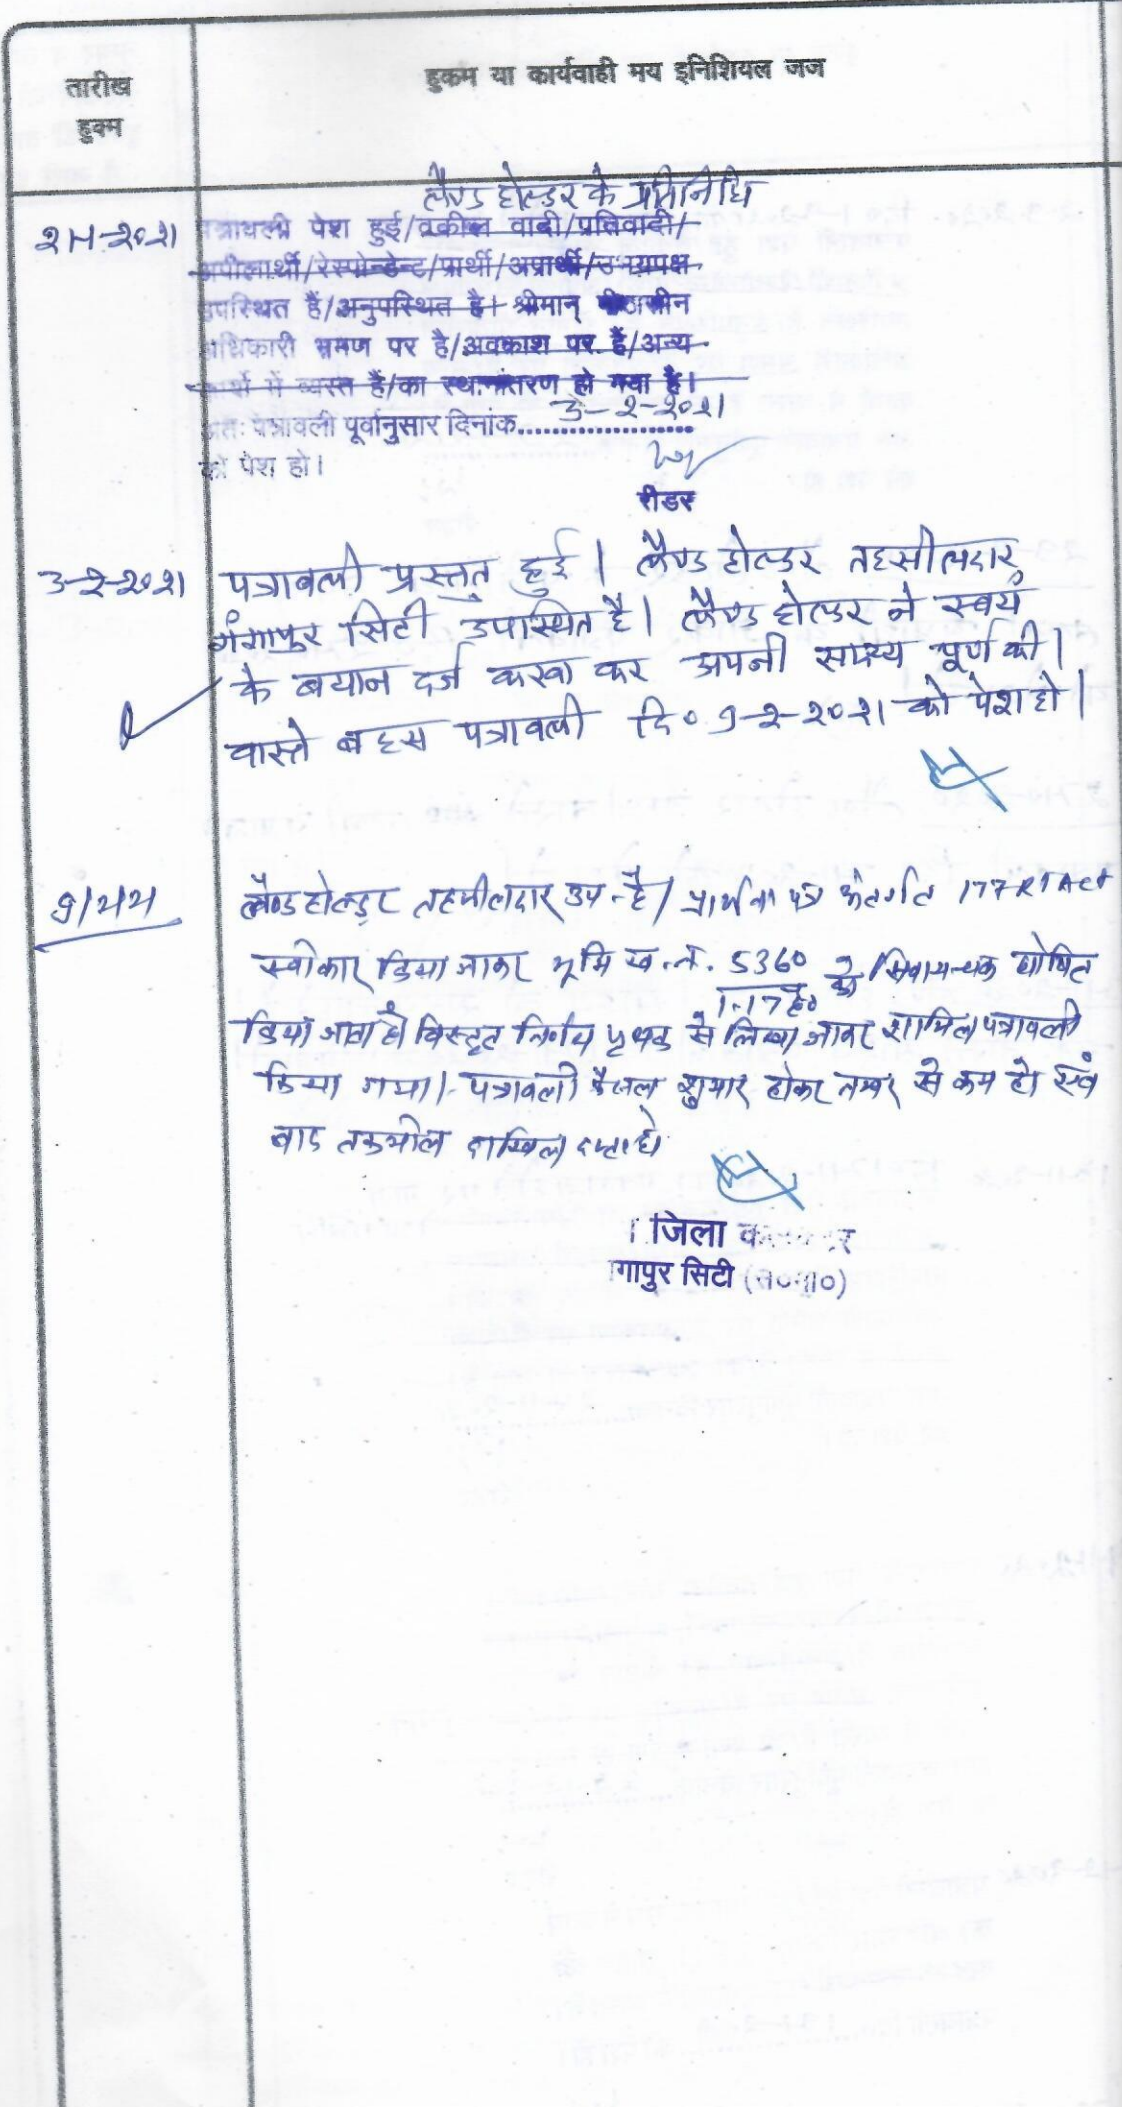 तारीख
हुक्म
हुकम या कार्यवाही मय इनिशियल जज
लैण्ड होल्डर के प्रतिनिधि
पत्रावली पेश हुई/वकील वादी/प्रतिवादी/
अपीलार्थी/रेस्पोन्डेन्ट/प्रार्थी/अप्रार्थी/उभयपक्ष
उपस्थित है/अनुपस्थित है। श्रीमान् पीठासीन
अधिकारी भ्रमण पर है/अवकाश पर है/अन्य
कार्यो में व्यस्त है/का स्थानान्तरण हो गया है।
अतः पत्रावली पूर्वानुसार दिनांक.....3-2-2021.....
को पेश हो।
रीडर
3-2-2021 पत्रावली प्रस्तुत हुई। लैण्ड होल्डर तहसीलदार
गंगापुर सिटी उपस्थित है। लैण्ड होल्डर ने स्वयं
के बयान दर्ज करवा कर अपनी साक्ष्य पूर्ण की।
वास्ते बहस पत्रावली दि० 9-2-2021 को पेश हो।
लैण्ड होल्डर तहसीलदार उप. है/ प्रार्थना पत्र अंतर्गत 177 RT Act
स्वीकार किया जाकर भूमि ख.नं. 5360 को सिवायचक घोषित
1.17 है०
किया जाता है। विस्तृत निर्णय पृथक से लिखा जाकर शामिल पत्रावली
किया गया। पत्रावली फैसल शुमार होकर नम्बर से कम हो एवं
बाद तकमील दाखिल दफ्तर हो
जिला
गापुर सिटी